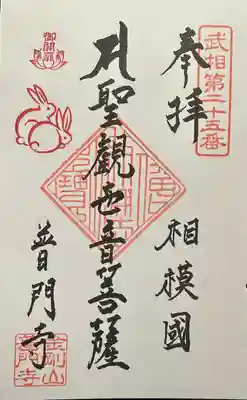 武相第二十五番
奉拝
相模國
聖觀世音菩薩
御開扉
普門寺
金剛山
普門寺